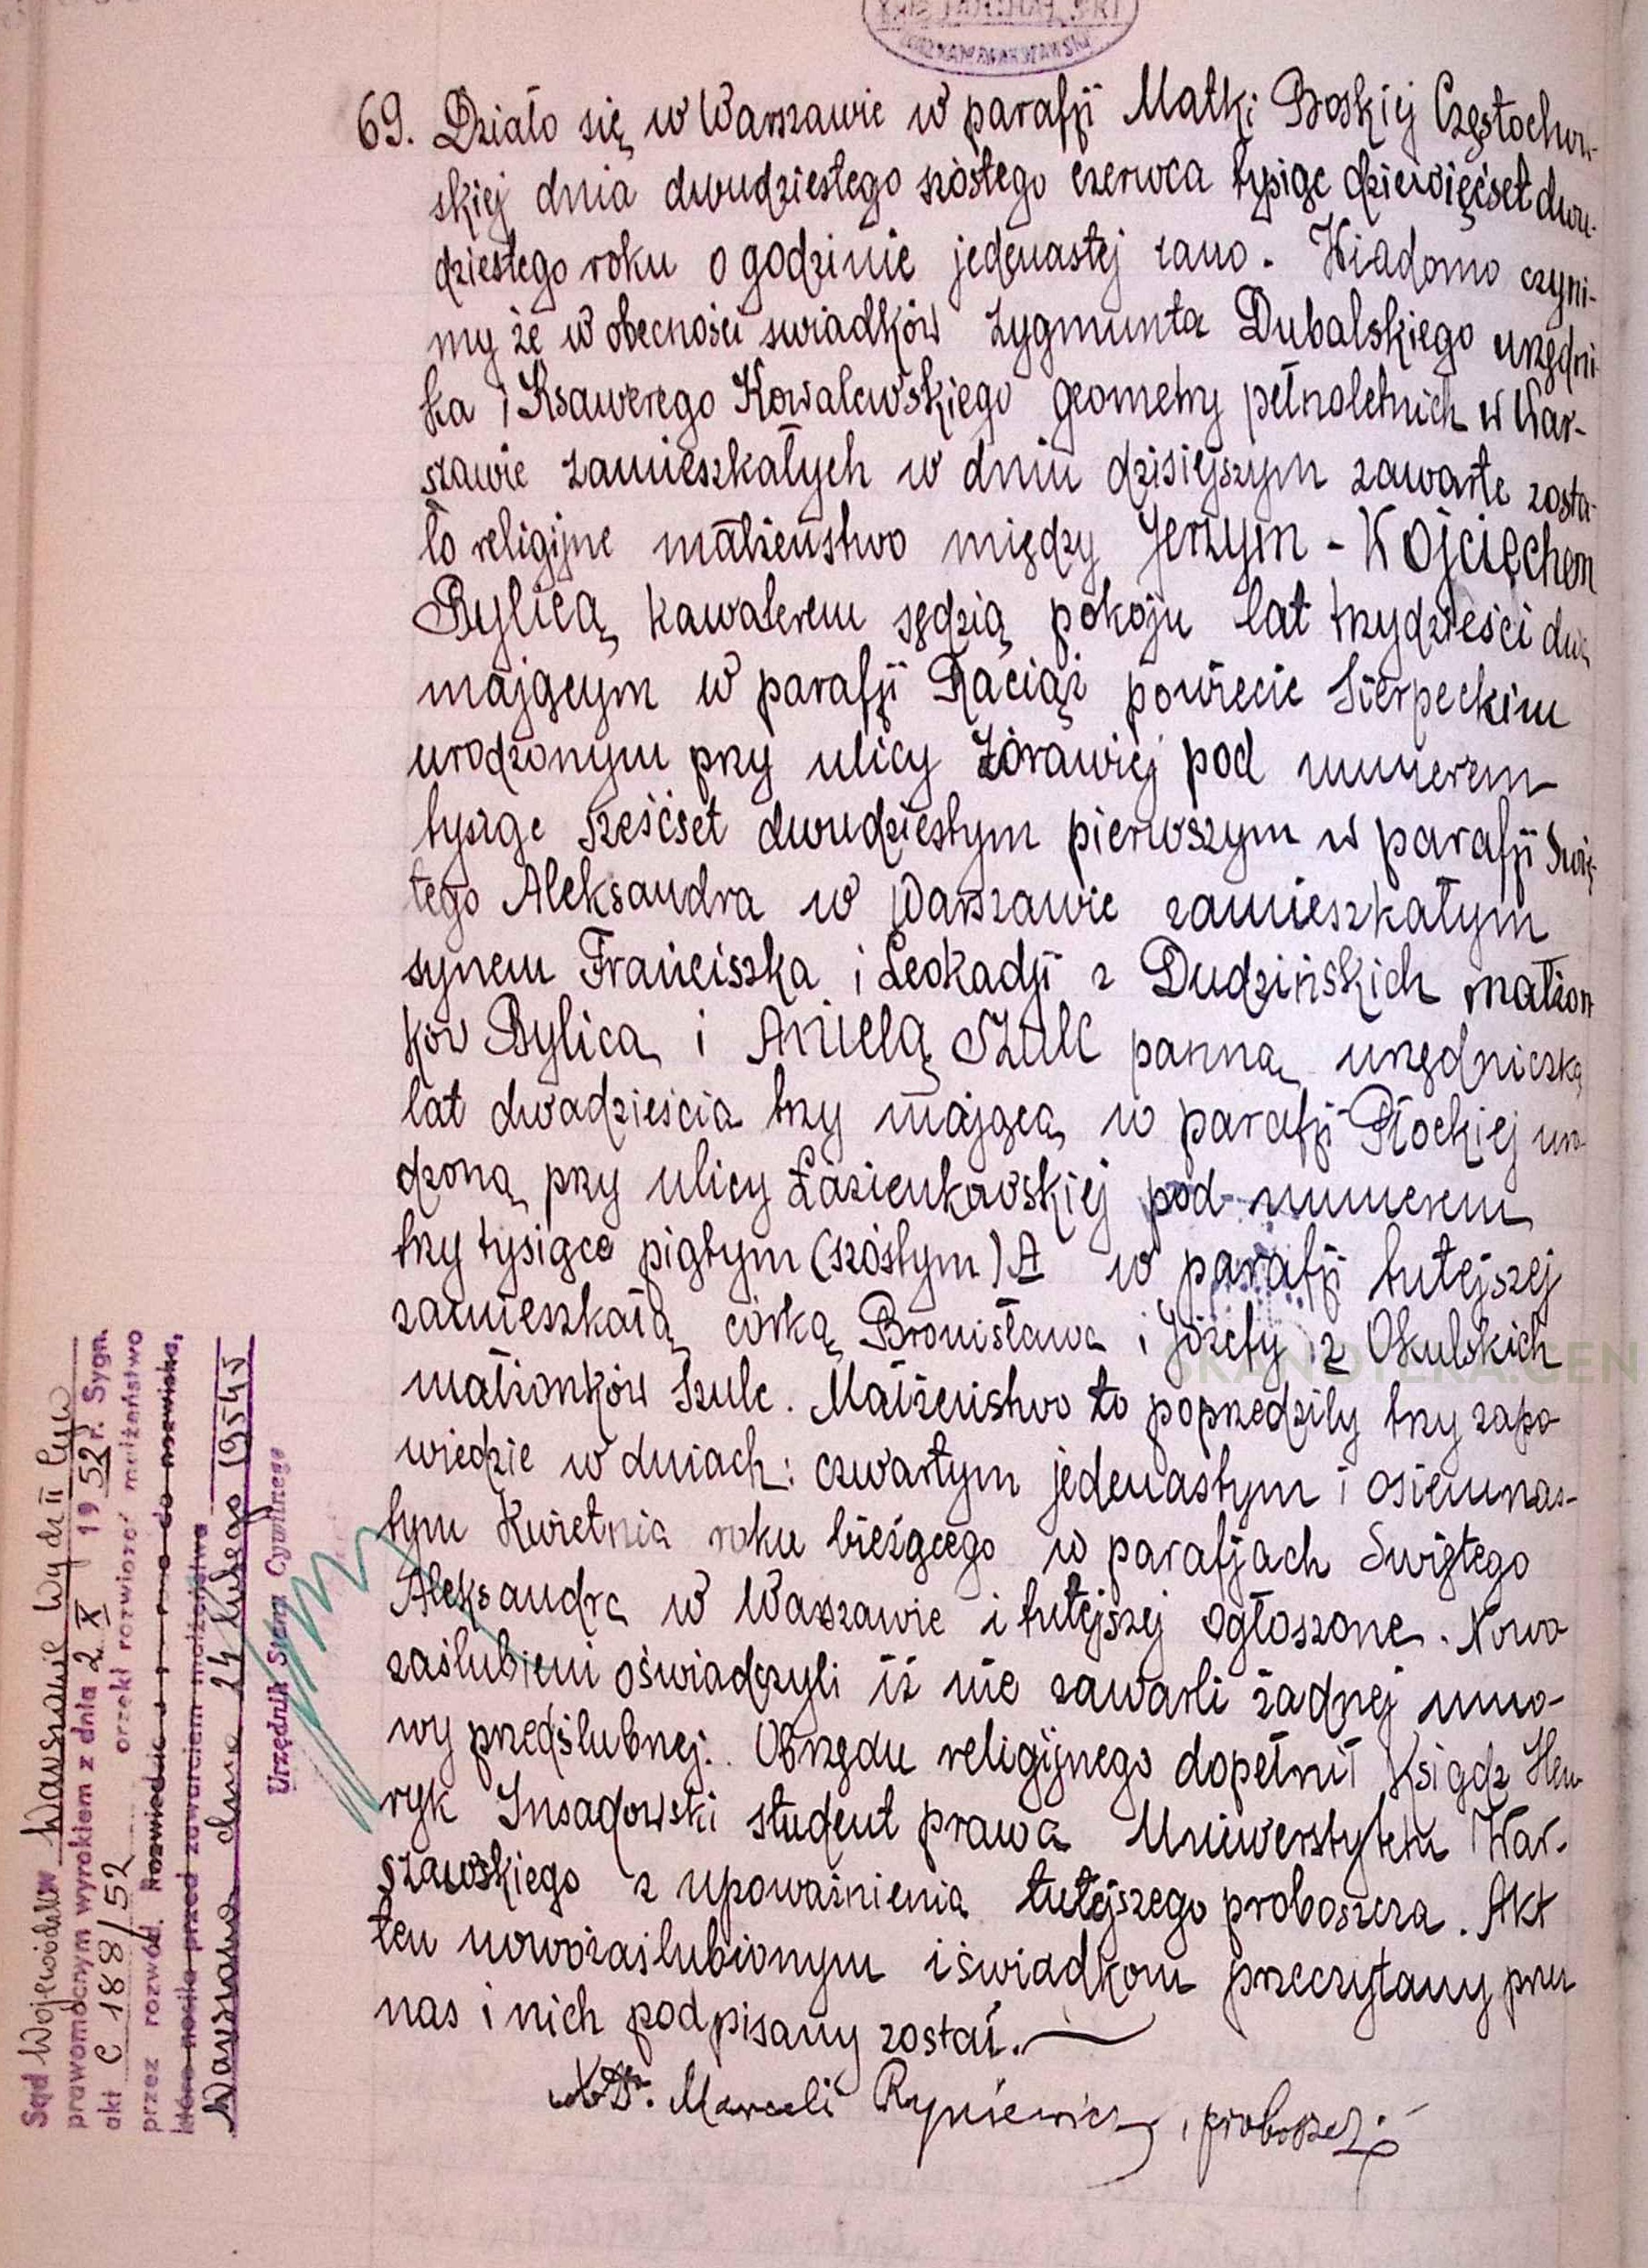 69. Działo się w Warszawie w parafji Matki Boskiej Częstochow-
skiej dnia dwudziestego szóstego czerwca tysiąc dziewięćset dwu-
dziestego roku o godzinie jedenastej rano. Wiadomo czyni-
my że w obecności świadków Zygmunta Dubalskiego urzędni
ka i Ksawerego Kowalewskiego geometry pełnoletnich w War-
szawie zamieszkałych w dniu dzisiejszym zawarte zosta-
ło religijne małżeństwo między Jerzym - Wojciechem
Bylicą kawalerem sędzią pokoju lat trzydzieści dwa
mającym w parafji Raciąż powiecie Sierpeckim
urodzonym przy ulicy Żórawiej pod numerem
tysiąc sześćset dwudziestym pierwszym w parafji Świę-
tego Aleksandra w Warszawie zamieszkałym
synem Franciszka i Leokadji z Dudzińskich małżon
ków Bylica i Anielą Szulc panną urzędniczką
lat dwadzieścia trzy mającą w parafji Płockiej uro
dzoną przy ulicy Łazienkowskiej pod numerem
trzy tysiące piątym (szóstym) A w parafji tutejszej
zamieszkałą córką Bronisława i Józefy z Okulskich
małżonków Szulc. Małżeństwo to poprzedziły trzy zapo
wiedzie w dniach: czwartym jedenastym i osiemnas-
tym Kwietnia roku bieżącego w parafjach Świętego
Aleksandra w Warszawie i tutejszej ogłoszone. Nowo
zaślubieni oświadczyli iż nie zawarli żadnej umo-
wy przedślubnej. Obrzędu religijnego dopełnił Ksiądz Hen
ryk Insadowski student prawa Uniwerstytetu War-
szawskiego z upoważnienia tutejszego proboszcza. Akt
ten nowozaślubionym i świadkom przeczytany przez
nas i nich podpisany został.
X Dr. Marceli , proboszcz
Sąd Wojewódzki w Warszawie Wydz II Cyw
prawomocnym wyrokiem z dnia 2 X 1952 r. Sygn.
akt C 188/52 orzekł rozwiązać małżeństwo
przez rozwód. Rozwiedzie
która nosiła przed zawarciem małżeństwa
Warszawa dnia 24 lutego 1954
Urzędnik Stanu Cywilnego